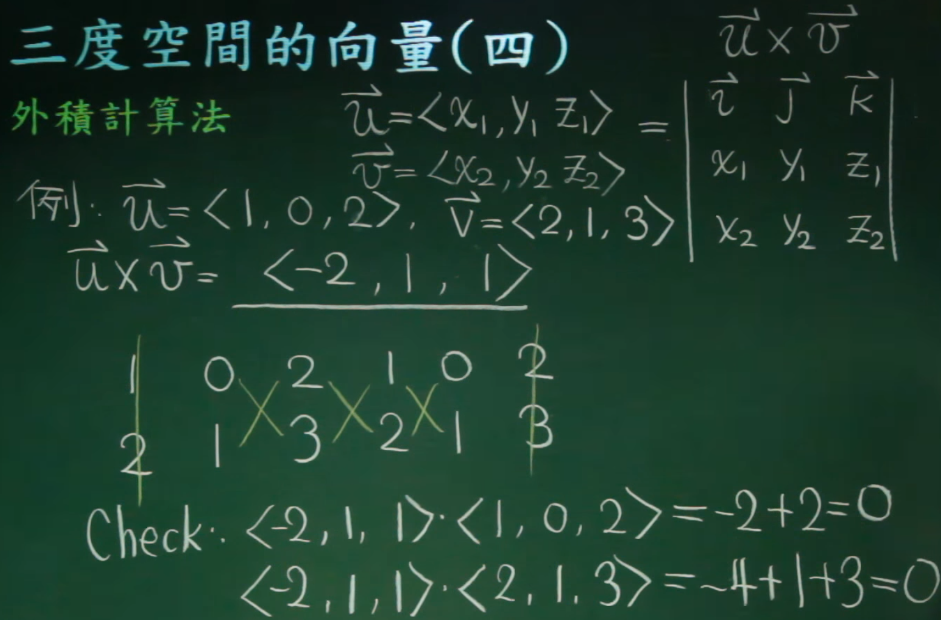 三度空間的向量(四)
外積計算法
u⃗=<x₁,y₁ z₁>
v⃗=<x₂,y₂ z₂>
u⃗×v⃗
= | i⃗ j⃗ k⃗ |
| x₁ y₁ z₁ |
| x₂ y₂ z₂ |
例: u⃗=<1,0,2>, v⃗=<2,1,3>
u⃗×v⃗= <-2,1,1>
1 0 2 1 0 2
2 1 3 2 1 3
Check: <-2,1,1>·<1,0,2>=-2+2=0
<-2,1,1>·<2,1,3>=-4+1+3=0